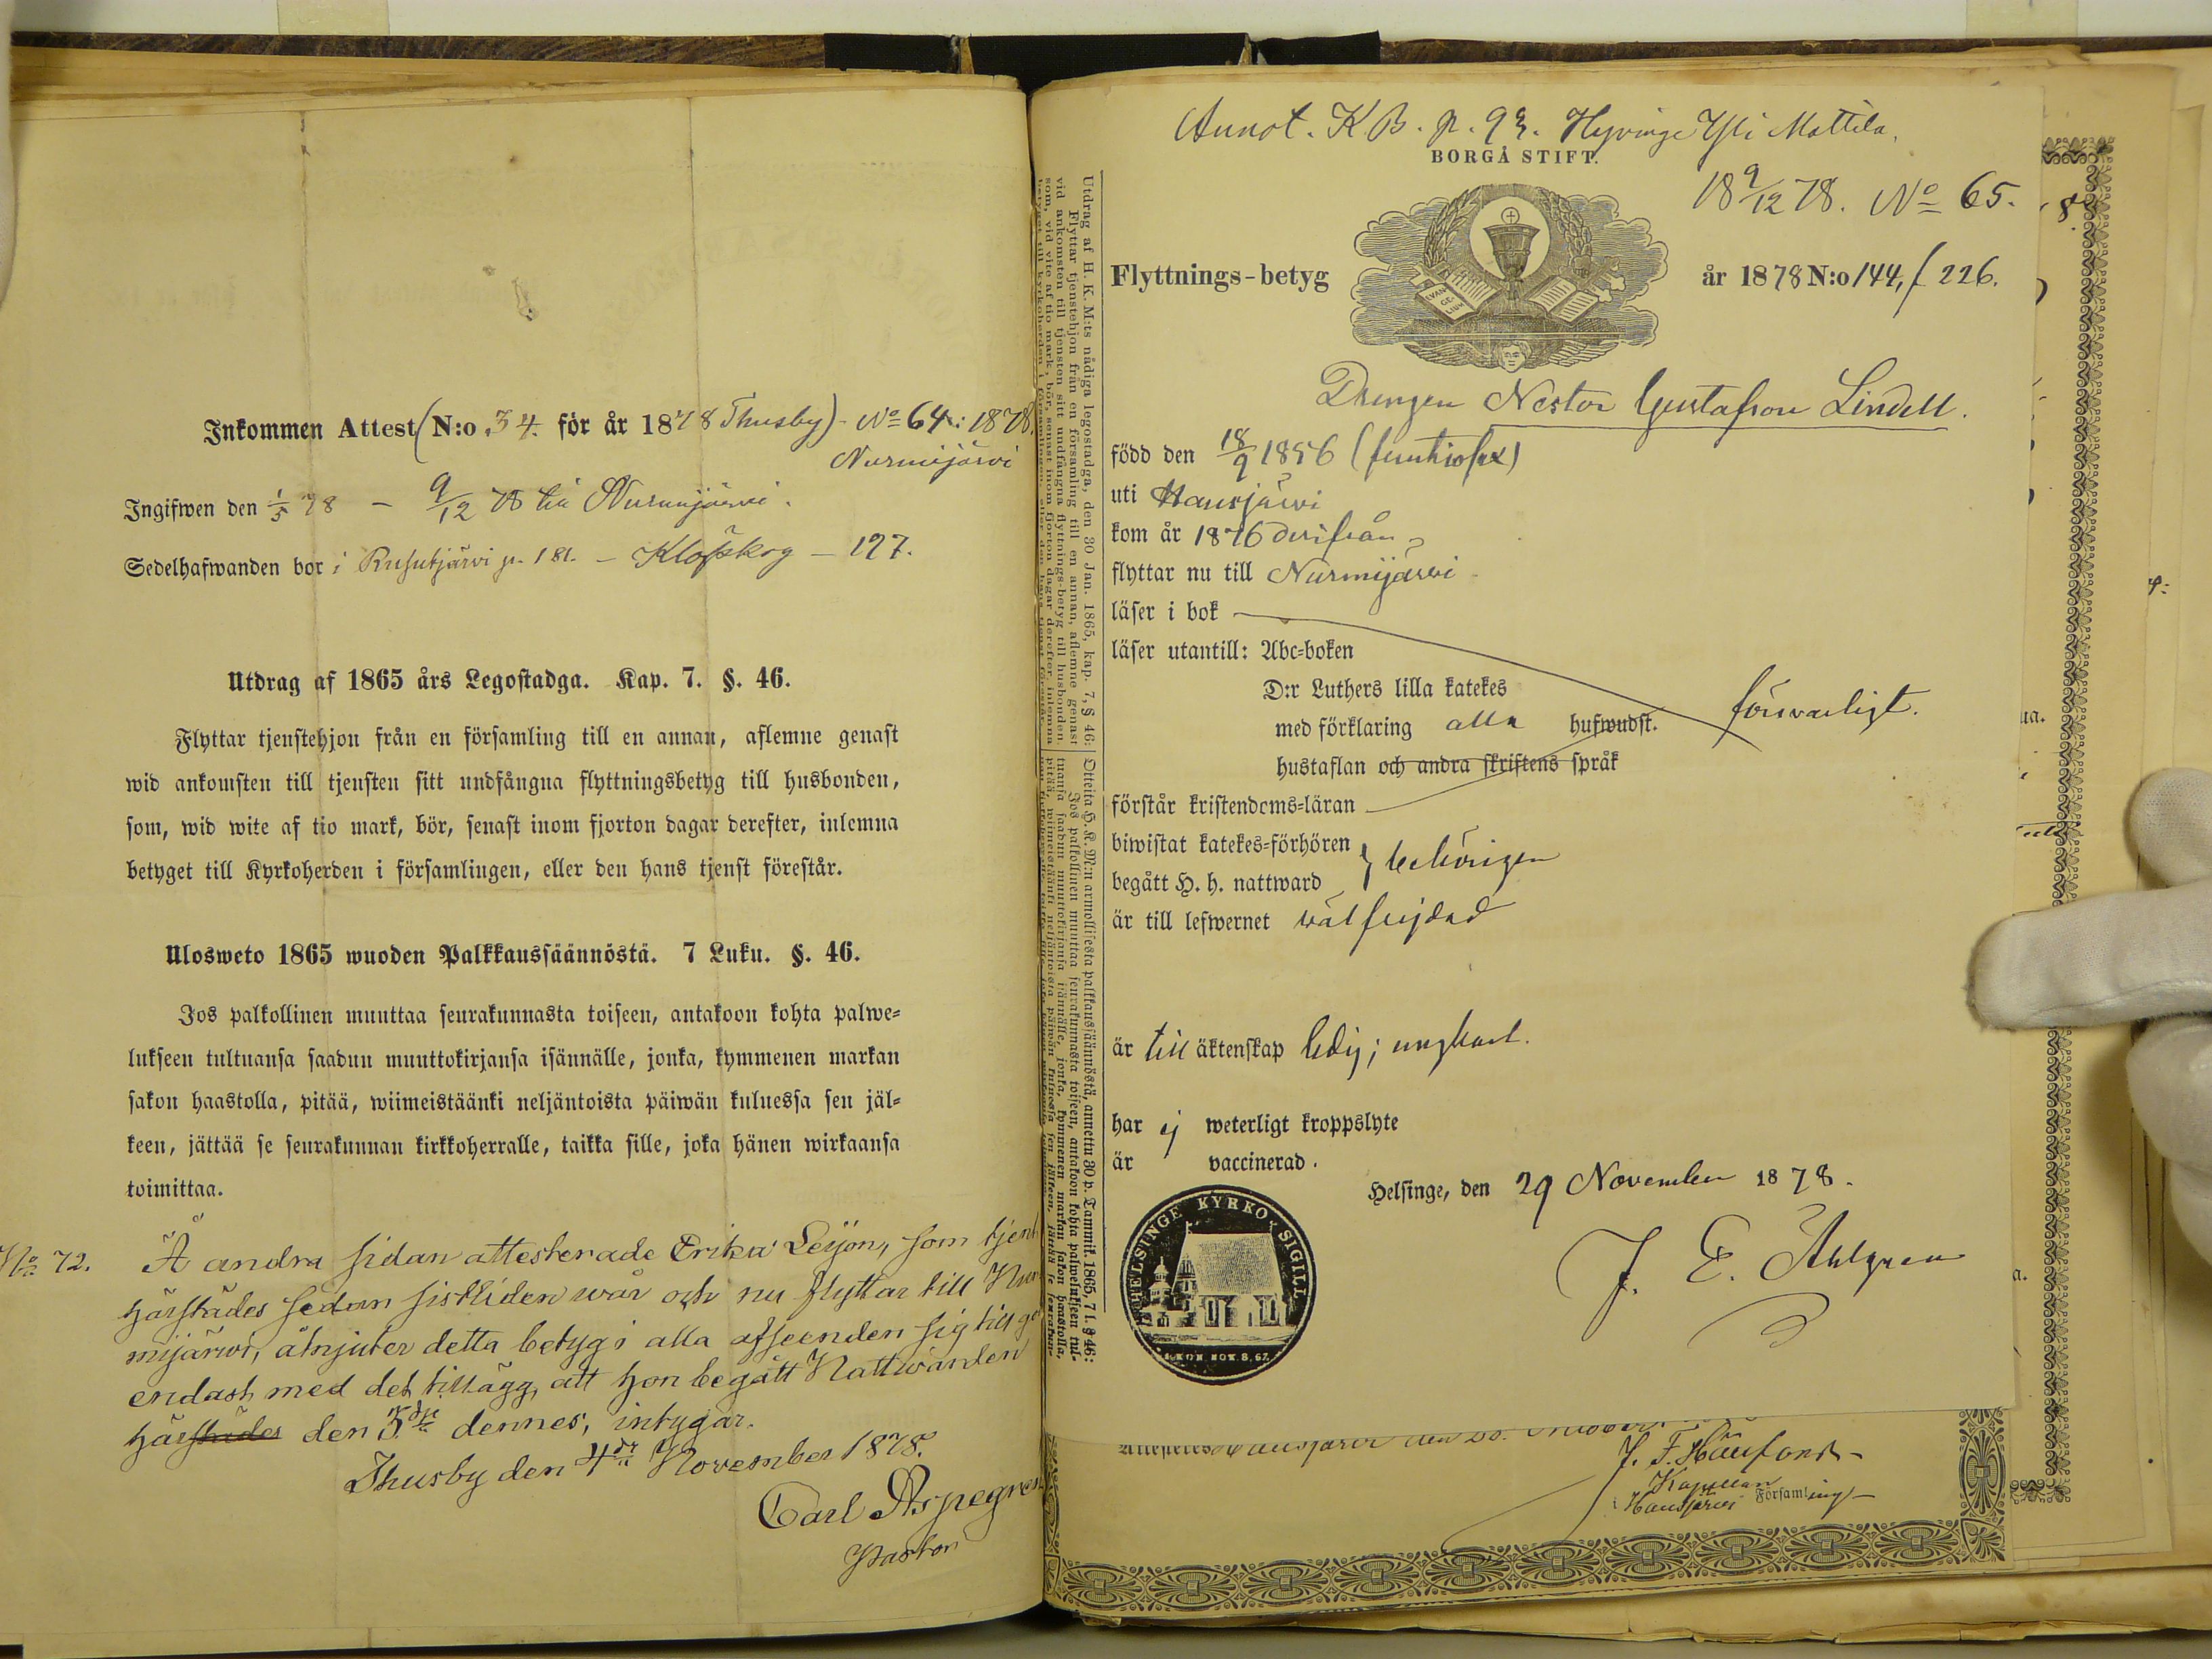 Inkommen Attest (N:o 34. för år 1878 Thusby) - No 64: 1878.
Nurmijärvi
Ingifwen den 1/5 78 - 9/12 78 till Nurmijärvi.
Sedelhafwanden bor i Rusutjärvi p. 181. - Klöfskog - 127.
Utdrag af 1865 års Legostadga. Kap. 7. §. 46.
Flyttar tjenstehjon från en församling till en annan, aflemne genast
wid ankomsten till tjensten sitt undfångna flyttningsbetyg till husbonden,
som, wid wite af tio mark, bör, senast inom fjorton dagar derefter, inlemna
betyget till Kyrkoherden i församlingen, eller den hans tjenst förestår.
Ulosweto 1865 wuoden Palkkaussäännöstä. 7 Luku. §. 46.
Jos palkollinen muuttaa seurakunnasta toiseen, antakoon kohta palwe-
lukseen tultuansa saadun muuttokirjansa isännälle, jonka, kymmenen markan
sakon haastolla, pitää, wiimeistäänki neljäntoista päiwän kuluessa sen jäl-
keen, jättää se seurakunnan kirkkoherralle, taikka sille, joka hänen wirkaansa
toimittaa.
No 72. Å andra sidan attesterade Erika Leijon, som tjent
härstädes sedan sistliden wår och nu flyttar till Nur
mijärwi, åtnjuter detta betyg i alla afseenden sig till go
endast med det tillägg, att hon begått Nattwarden
härstädes den 3dje dennes, intygar.
Thusby den 4de November 1878.
Carl Aspegren
Pastor
Annot. K.B. p. 93. Hyvinge Yli Mattila.
BORGÅ STIFT.
18 9/12 78. No 65.
EVAN-
GE-
LIUM
Flyttnings-betyg år 1878 N:o 144, f 226.
Drengen Nestor Gustafson Lindell.
född den 18/9 1856
uti Hausjärvi
kom år 1876 derifrån
flyttar nu till Nurmijärvi
läser i bok
läser utantill: Abc-boken
D:r Luthers lilla katekes
med förklaring alla hufwudst. försvarligt.
hustaflan och andra skriftens språk
förstår kristendoms-läran
biwistat katekes-förhören
begått H. h. nattward } behörigen
är till lefwernet väl frejdad
är till äktenskap ledig; ungkarl.
har ej weterligt kroppslyte
är vaccinerad.
Helsinge, den 29 November 1878.
J. E. Ahlgren
HELSINGE KYRKO SIGILL
Utdrag af H. K. M:ts nådiga legostadga, den 30 Jan. 1865, kap. 7, § 46:
Flyttar tjenstehjon från en församling till en annan, aflemne genast
vid ankomsten till tjensten sitt undfångna flyttnings-betyg till husbonden,
som, vid vite af tio mark, bör, senast inom fjorton dagar derefter, inlemna
Otteita H. K. M:n armollisesta palkkaussäännöstä, annettu 30 p. Tammik. 1865, 7 l. § 46:
Jos palkollinen muuttaa seurakunnasta toiseen, antakoon kohta palwelukseen tul-
tuansa saadun muuttokirjansa isännälle, jonka, kymmenen markan sakon haastolla,
Kapellan
i Hausjärvi Församling